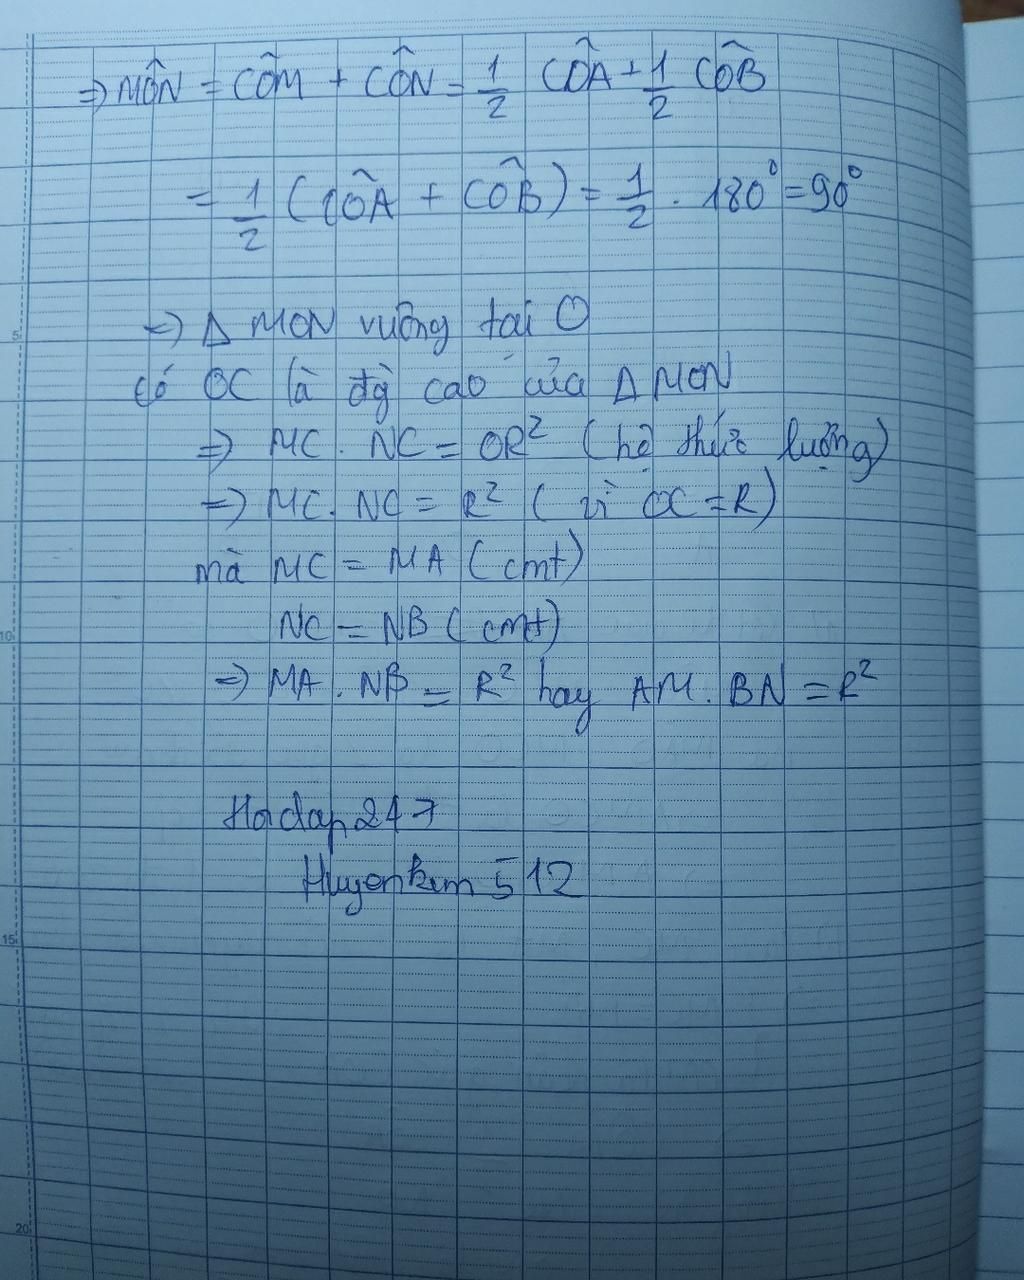 ⇒ MÔN = CÔM + CÔN = 1/2 CÔA + 1/2 CÔB
= 1/2 (CÔA + CÔB) = 1/2 . 180° = 90°
⇒ Δ MON vuông tại O
5
có OC là đg cao của Δ MON
⇒ MC . NC = OR² (hệ thức lượng)
⇒ MC . NC = R² ( vì OC = R)
mà MC = MA (cmt)
NC = NB (cmt)
10
⇒ MA . NB = R² hay AM . BN = R²
Hoidap247
Huyenkem512
15
20